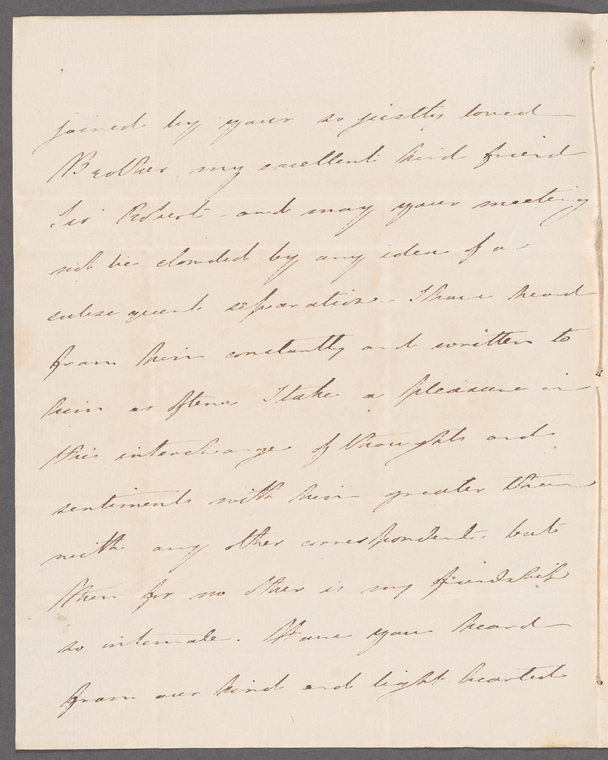 joined by your so justly loved
Brother my excellent kind friend
Sir Robert - and may your meeting
not be clouded by any idea of a
subsequent separation - I have heard
from him constantly and written to
him as often. I take a pleasure in
this interchange of thoughts and
sentiments with him greater than
with any other correspondent. but
then for no other is my friendship
so intimate. Have you heard
from our kind and light hearted